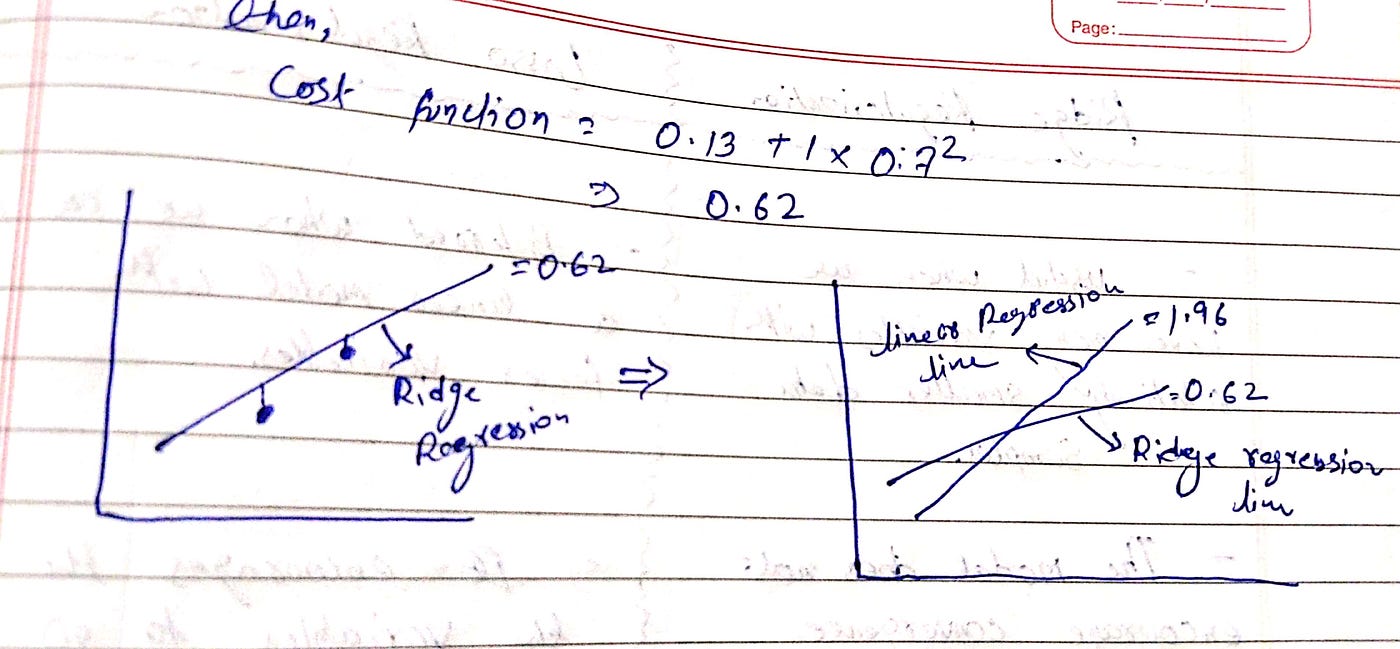 Then,
Page:
Cost function = 0.13 + 1 x 0.7²
⇒ 0.62
= 0.62
Ridge
Regression
⇒
linear Regression
line
= 1.96
= 0.62
Ridge regression
line